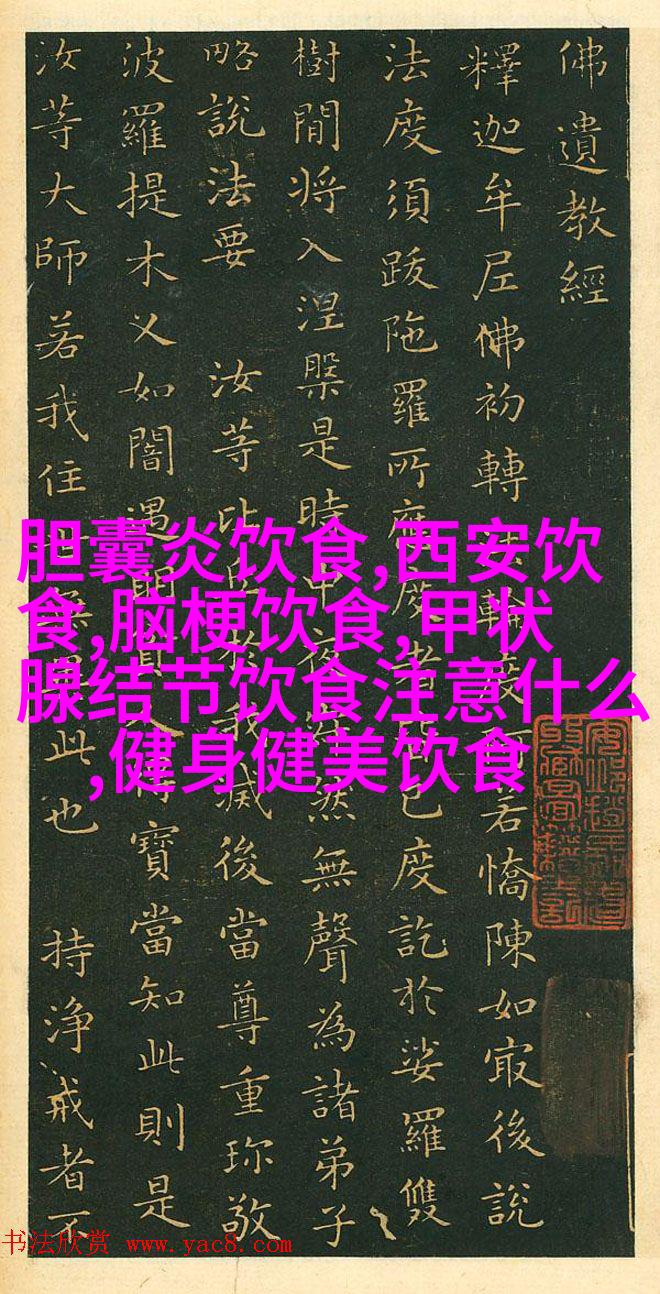 佛遺教經
釋迦牟尼佛初轉法輪度阿若憍陳如冣後說
法度須跋陁羅所應度者皆已度訖於娑羅雙
樹間將入涅槃是時中夜寂然無聲為諸弟子
略說法要 汝等比丘於我滅後當尊重珎敬
波羅提木叉如闇遇明貧人得寶當知此則是
汝等大師若我住世無異此也 持淨戒者不
胆囊炎饮食,西安饮
食,脑梗饮食,甲状
腺结节饮食注意什么
,健身健美饮食
书法欣赏 www.yac8.com